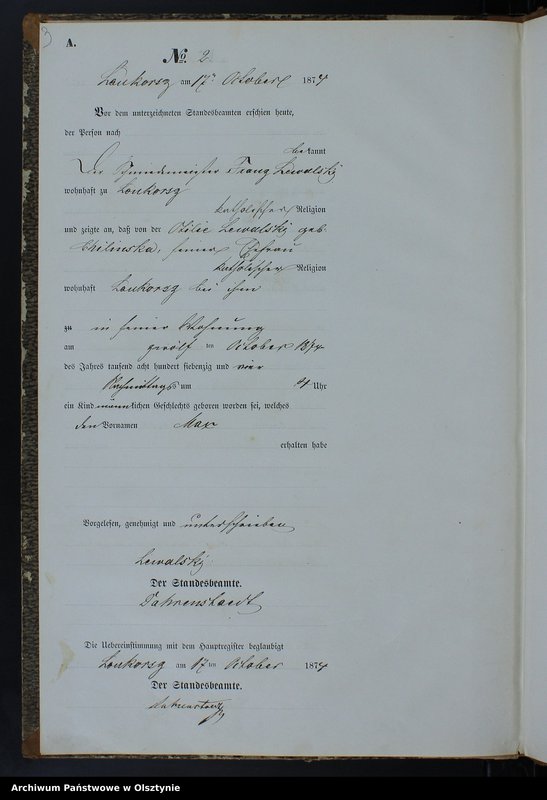 3
A.
No. 2
Loukorsz am 17. October 1874
Vor dem unterzeichneten Standesbeamten erschien heute,
der Person nach
bekannt
Der Schmiedemeister Franz Lewalski
wohnhaft zu Loukorsz
katholischer Religion
und zeigte an, daß von der Lewalski geb.
seiner Ehefrau
katholischer Religion
wohnhaft Loukorsz bei ihm
zu in seiner Wohnung
am zwölf ten October 1874
des Jahres tausend acht hundert siebenzig und vier
Nachmittags um 4 Uhr
ein Kind männlichen Geschlechts geboren worden sei, welches
den Vornamen Max
erhalten habe
Vorgelesen, genehmigt und unterschrieben
Lewalski
Der Standesbeamte.
Fahrenstaedt
Die Uebereinstimmung mit dem Hauptregister beglaubigt
Loukorsz am 17 ten October 1874
Der Standesbeamte.
Archiwum Państwowe w Olsztynie